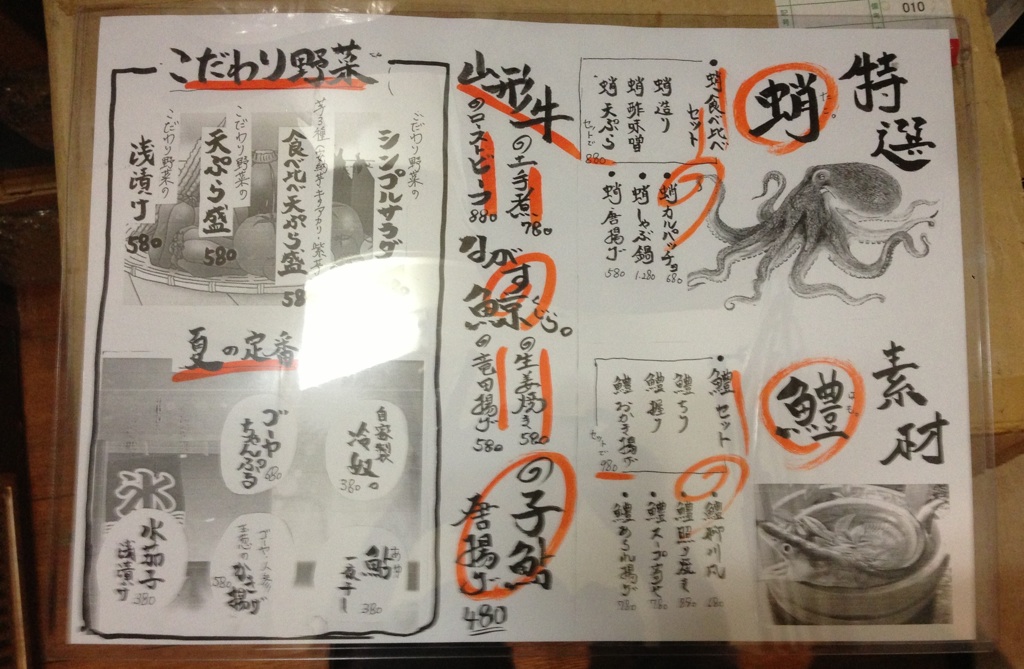 010
特選
素材
蛸
たこ。
・蛸食べ比べセット
蛸造り
蛸酢味噌
蛸天ぷら
セットで
880
・蛸カルパッチョ
680
・蛸しゃぶ鍋
1.280
・蛸唐揚げ
580
鱧
はも。
・鱧セット
鱧ちり
鱧握り
鱧おかき揚げ
セットで
980
・鱧柳川風
・鱧照り焼き
・鱧スープ
780
・鱧あられ揚げ
780
山形牛
の土手煮
780
のローストビーフ
880
ながす鯨
くじら。
の生姜焼き
580
の竜田揚げ
580
の子鮎
唐揚げ
480
こだわり野菜
こだわり野菜の
シンプルサラダ
食べ比べ天ぷら盛
58
こだわり野菜の
天ぷら盛
580
こだわり野菜の
浅漬け
580
夏の定番
自家製
冷奴。
380
ゴーヤ
ちゃんぷる
480
氷
鮎
あゆ
一夜干し
380
580
水茄子
浅漬け
380